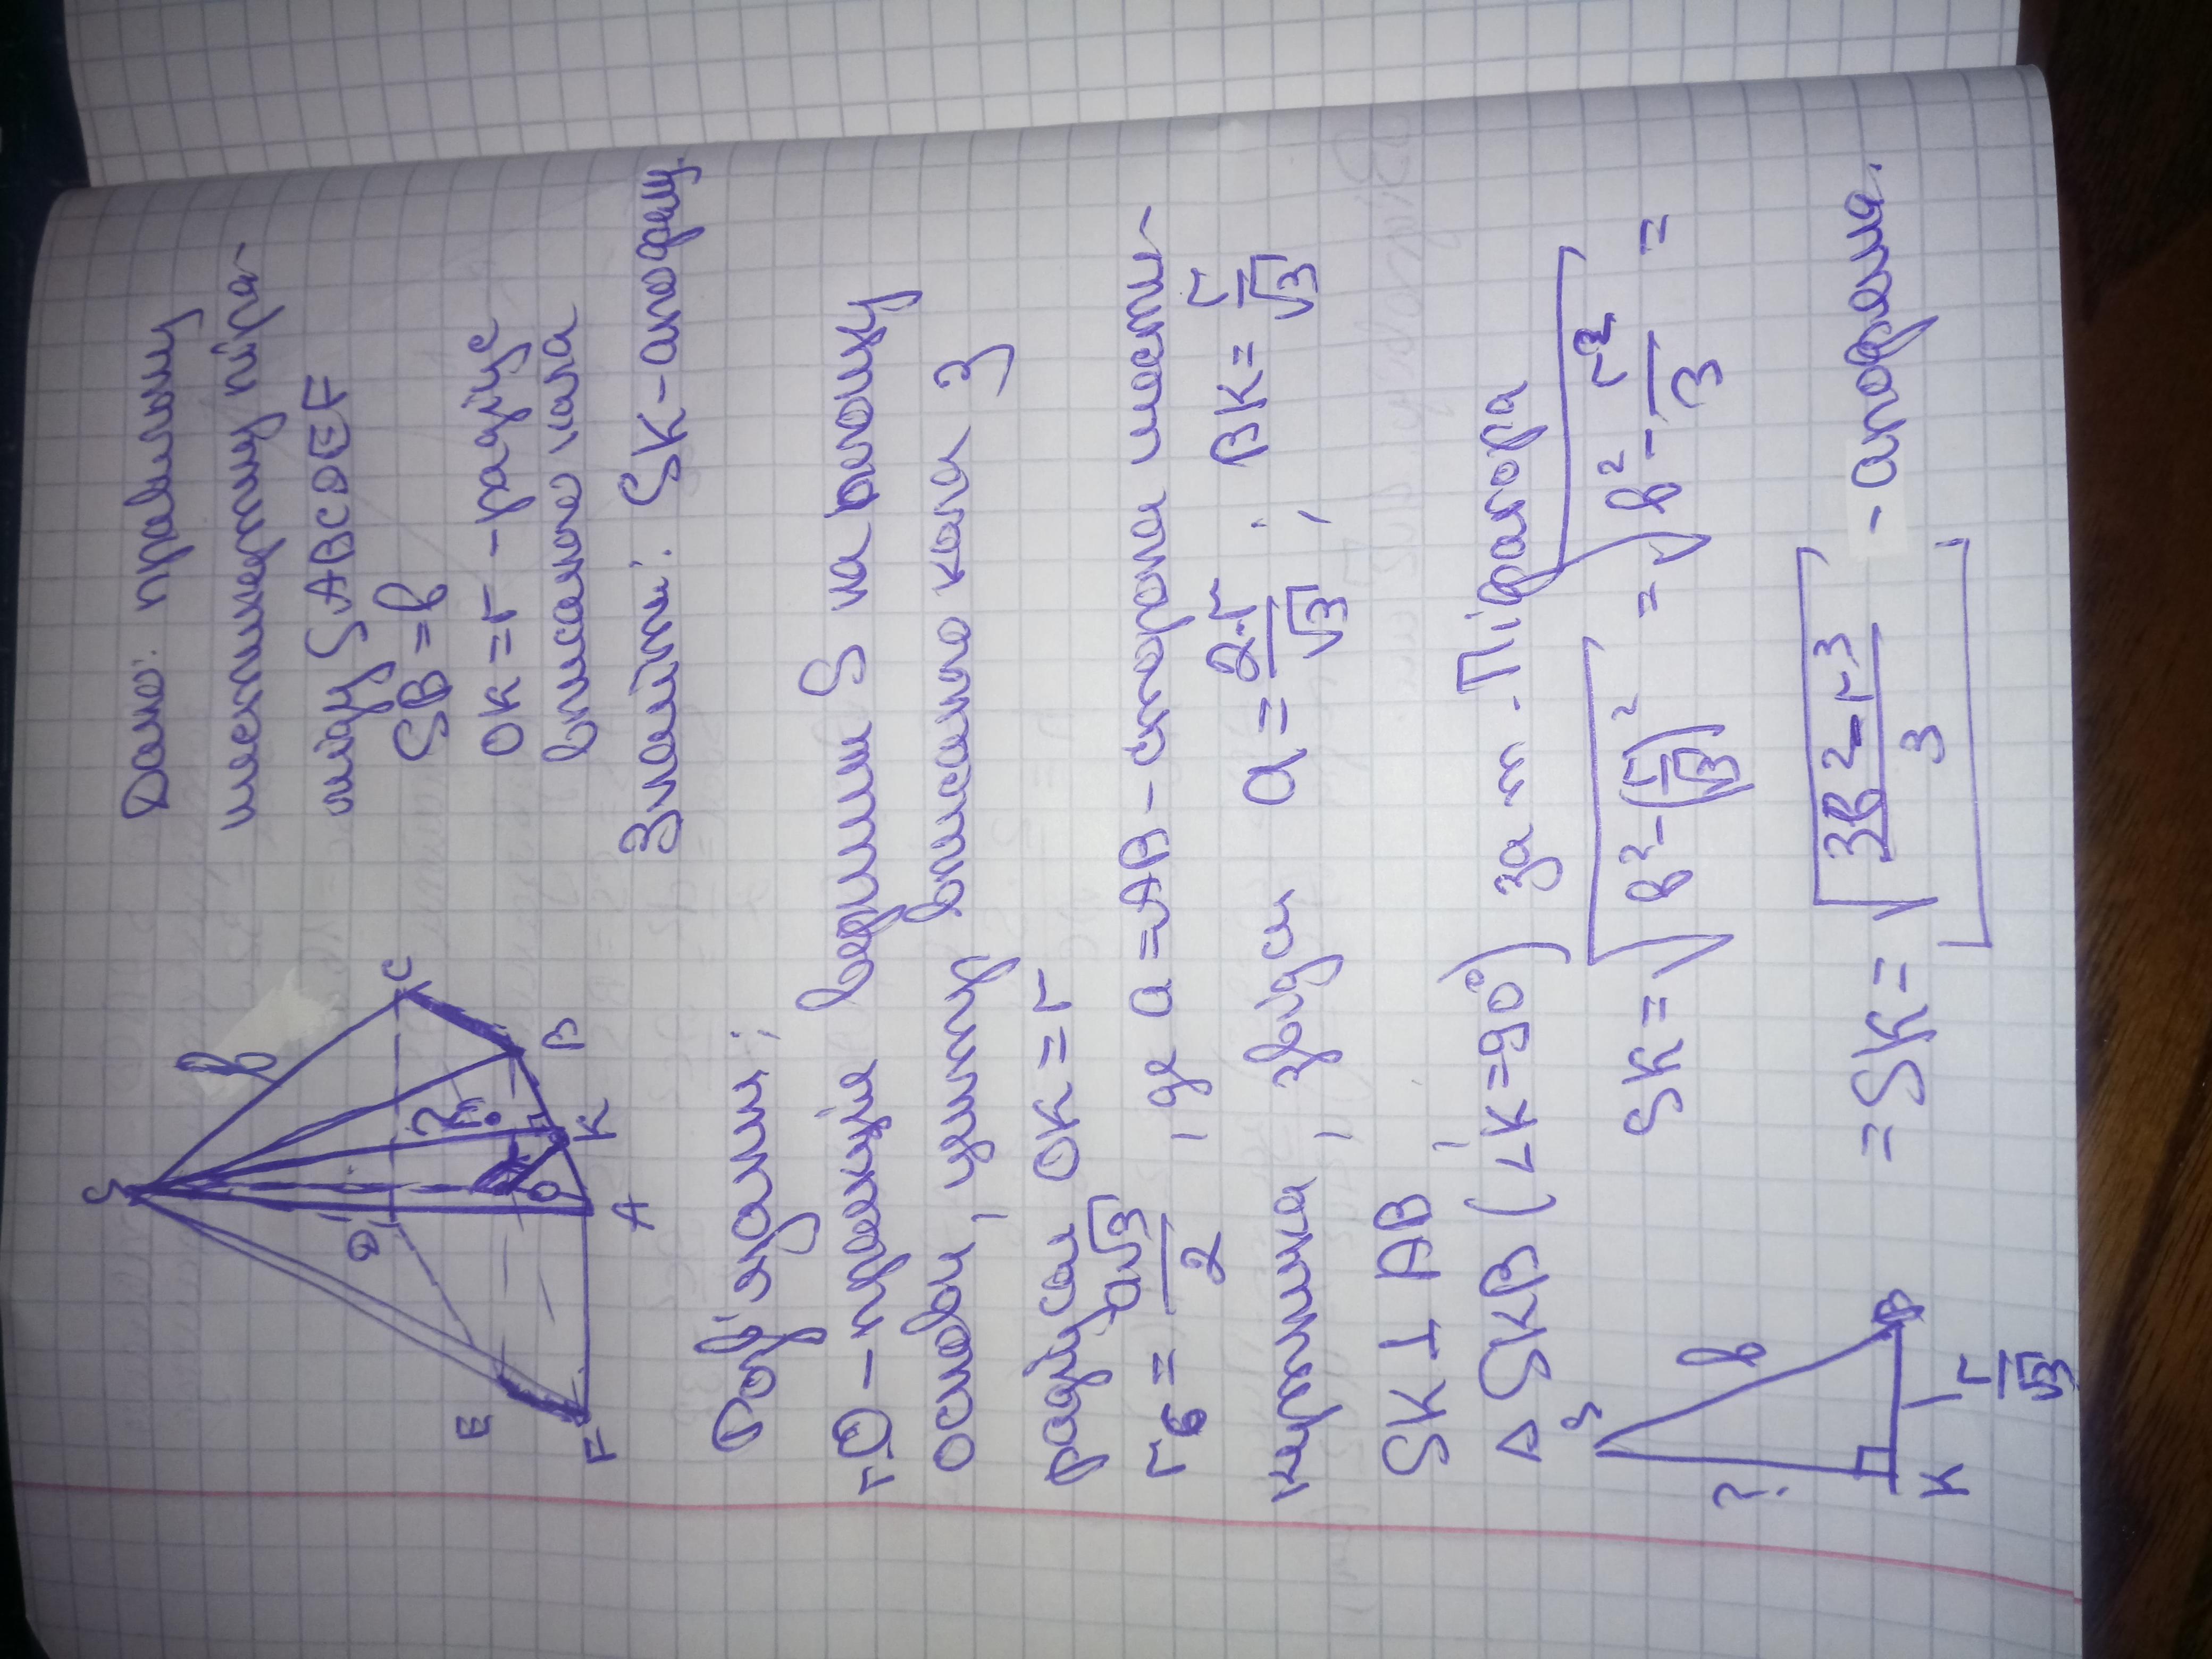 Дано: правильну
шестикутну піра-
міду SABCDEF
SB = b
OK = r - радіус
вписаного кола
Знайти: SK - апофему
S
b
C
D
?
r
B
O
K
A
E
F
Розв'язати:
т.О - проекція вершини S на площу
основи, центр вписаного кола з
радіусом OK = r
r6 = a√3/2, де a = AB - сторона шести-
кутника, звідси a = 2·r/√3; BK = r/√3
SK ⊥ AB
△ SKB (∠K = 90°) за т. Піфагора
SK = √(b² - (r/√3)²) = √(b² - r²/3) =
= SK = √((3b² - r³)/3) - апофема.
S
b
?
K
B
r/√3